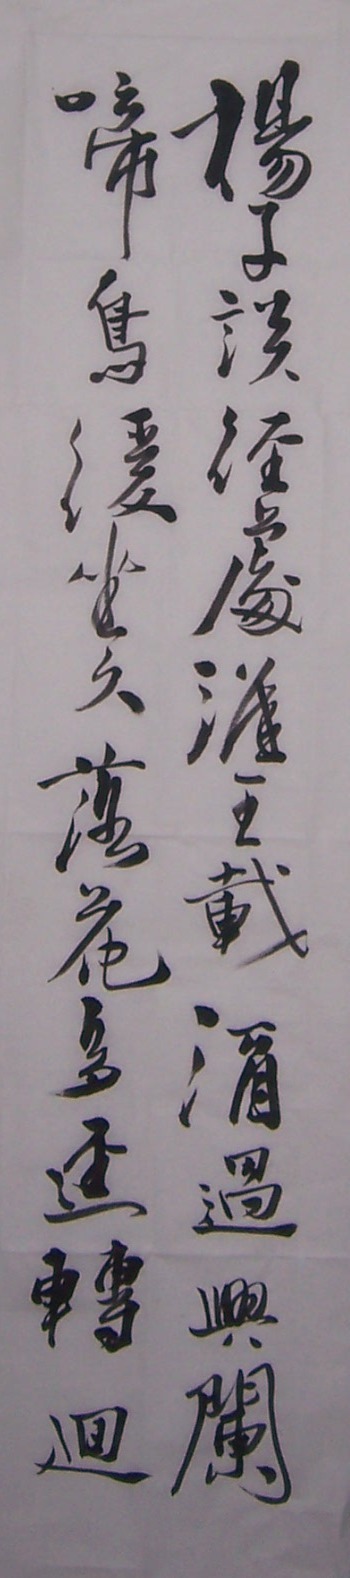 楊子談經處淮王載酒過興闌
啼鳥緩坐久落花多逕轉迴